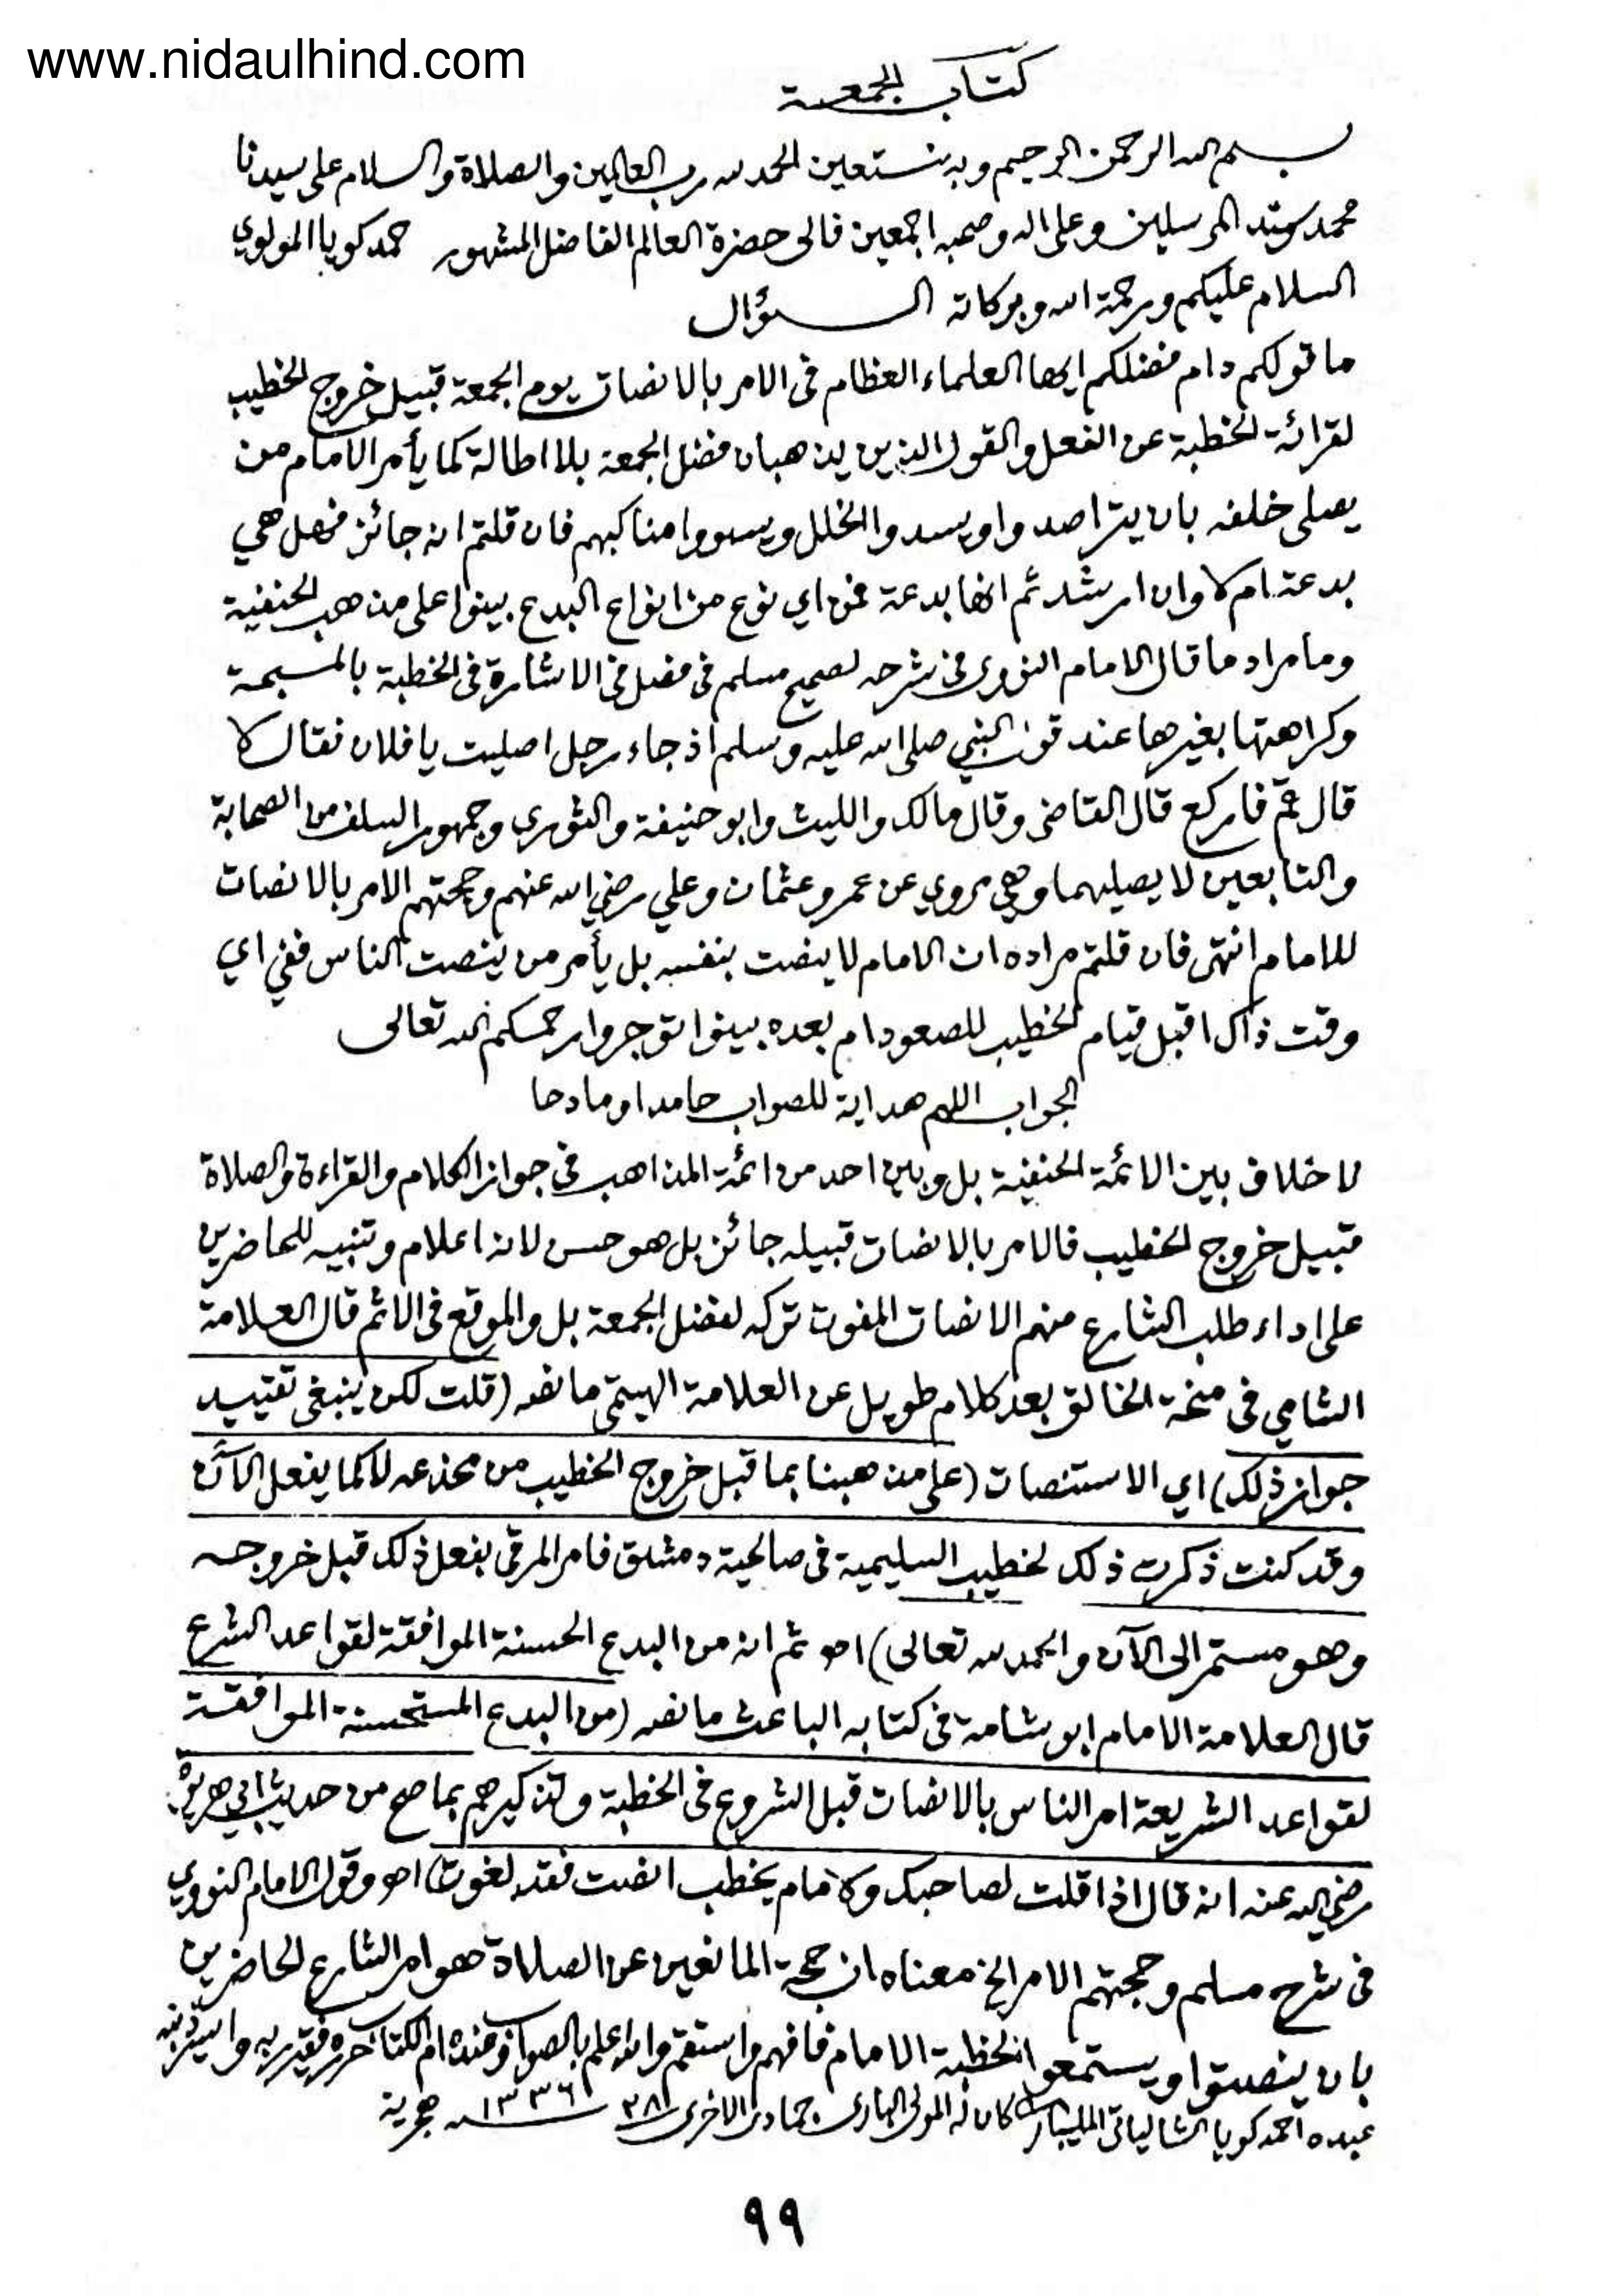 www.nidaulhind.com
كتاب الجمعة
بسم الله الرحمن الرحيم وبه نستعين الحمد لله رب العالمين والصلاة والسلام على سيدنا
محمد سيد المرسلين وعلى اله وصحبه اجمعين فالى حضرة العالم الفاضل المشهور حمد كويا المولوي
السلام عليكم ورحمة الله وبركاته السؤال
ما قولكم دام فضلكم ايها العلماء العظام فى الامر بالانصات يوم الجمعة قبيل خروج الخطيب
لقرائة الخطبة عن الفعل والقول الذين يذهبان فضل الجمعة بلا اطالة كما يأمر الامام من
يصلى خلفه بان يتراصدوا ويسدوا الخلل ويسووا مناكبهم فان قلتم انه جائز فهل هي
بدعة ام لا وان ارشدتم انها بدعة فمن اي نوع من انواع البدع بينوا على مذهب الحنفية
وما مراد ما قال الامام النووى فى شرحه لصحيح مسلم فى فصل فى الاشارة فى الخطبة بالمسبحة
وكراهتها بغيرها عند قول النبي صلى الله عليه وسلم اذ جاء رجل اصليت يا فلان فقال لا
قال قم فاركع قال القاضى وقال مالك والليث وابو حنيفة والثوري وجمهور السلف من الصحابة
والتابعين لا يصليهما وهى مروي عن عمر وعثمان وعلي رضي الله عنهم وحجتهم الامر بالانصات
للامام انتهى فان قلتم مراده ان الامام لا ينصت بنفسه بل يأمر من ينصت الناس ففي اي
وقت ذاك اقبل قيام الخطيب للصعود ام بعده بينوا توجروا رحمكم الله تعالى
الجواب اللهم هداية للصواب حامدا ومادحا
لا خلاف بين الائمة الحنفية بل وبين احد من ائمة المذاهب فى جواز الكلام والقراءة والصلاة
قبيل خروج الخطيب فالامر بالانصات قبيله جائز بل هو حسن لانه اعلام وتنبيه للحاضرين
على اداء طلب الشارع منهم الانصات المفوت تركه لفضل الجمعة بل والموقع فى الاثم قال العلامة
الشامي فى منحة الخالق بعد كلام طويل عن العلامة الهيتمى ما نصه (قلت لكن ينبغى تقييد
جواز ذلك) اي الاستنصات (على مذهبنا بما قبل خروج الخطيب من مخدعه لا كما يفعل الآن
وقد كنت ذكرت ذلك لخطيب السليمية فى صالحية دمشق فامر المرقى بفعل ذلك قبل خروجه
وهو مستمر الى الآن والحمد لله تعالى) اهـ ثم انه من البدع الحسنة الموافقة لقواعد الشرع
قال العلامة الامام ابو شامة فى كتابه الباعث ما نصه (من البدع المستحسنة الموافقة
لقواعد الشريعة امر الناس بالانصات قبل الشروع فى الخطبة وتذكيرهم بما صح من حديث ابي هريرة
رضي الله عنه انه قال اذا قلت لصاحبك والامام يخطب انصت فقد لغوت) اهـ وقول الامام النووي
فى شرح مسلم وحجتهم الامر الخ معناه ان حجة المانعين عن الصلاة هو امر الشارع الحاضرين
بان ينصتوا ويستمعوا لخطبة الامام فافهم واستقم والله اعلم بالصواب وعنده ام الكتاب حرره فقير ربه واسير ذنبه
عبده احمد كويا الشالياتى المليبارى كان له المولى البارى جمادى الاخرى ٣٨١ ١٣٣٦ هجرية
٩٩